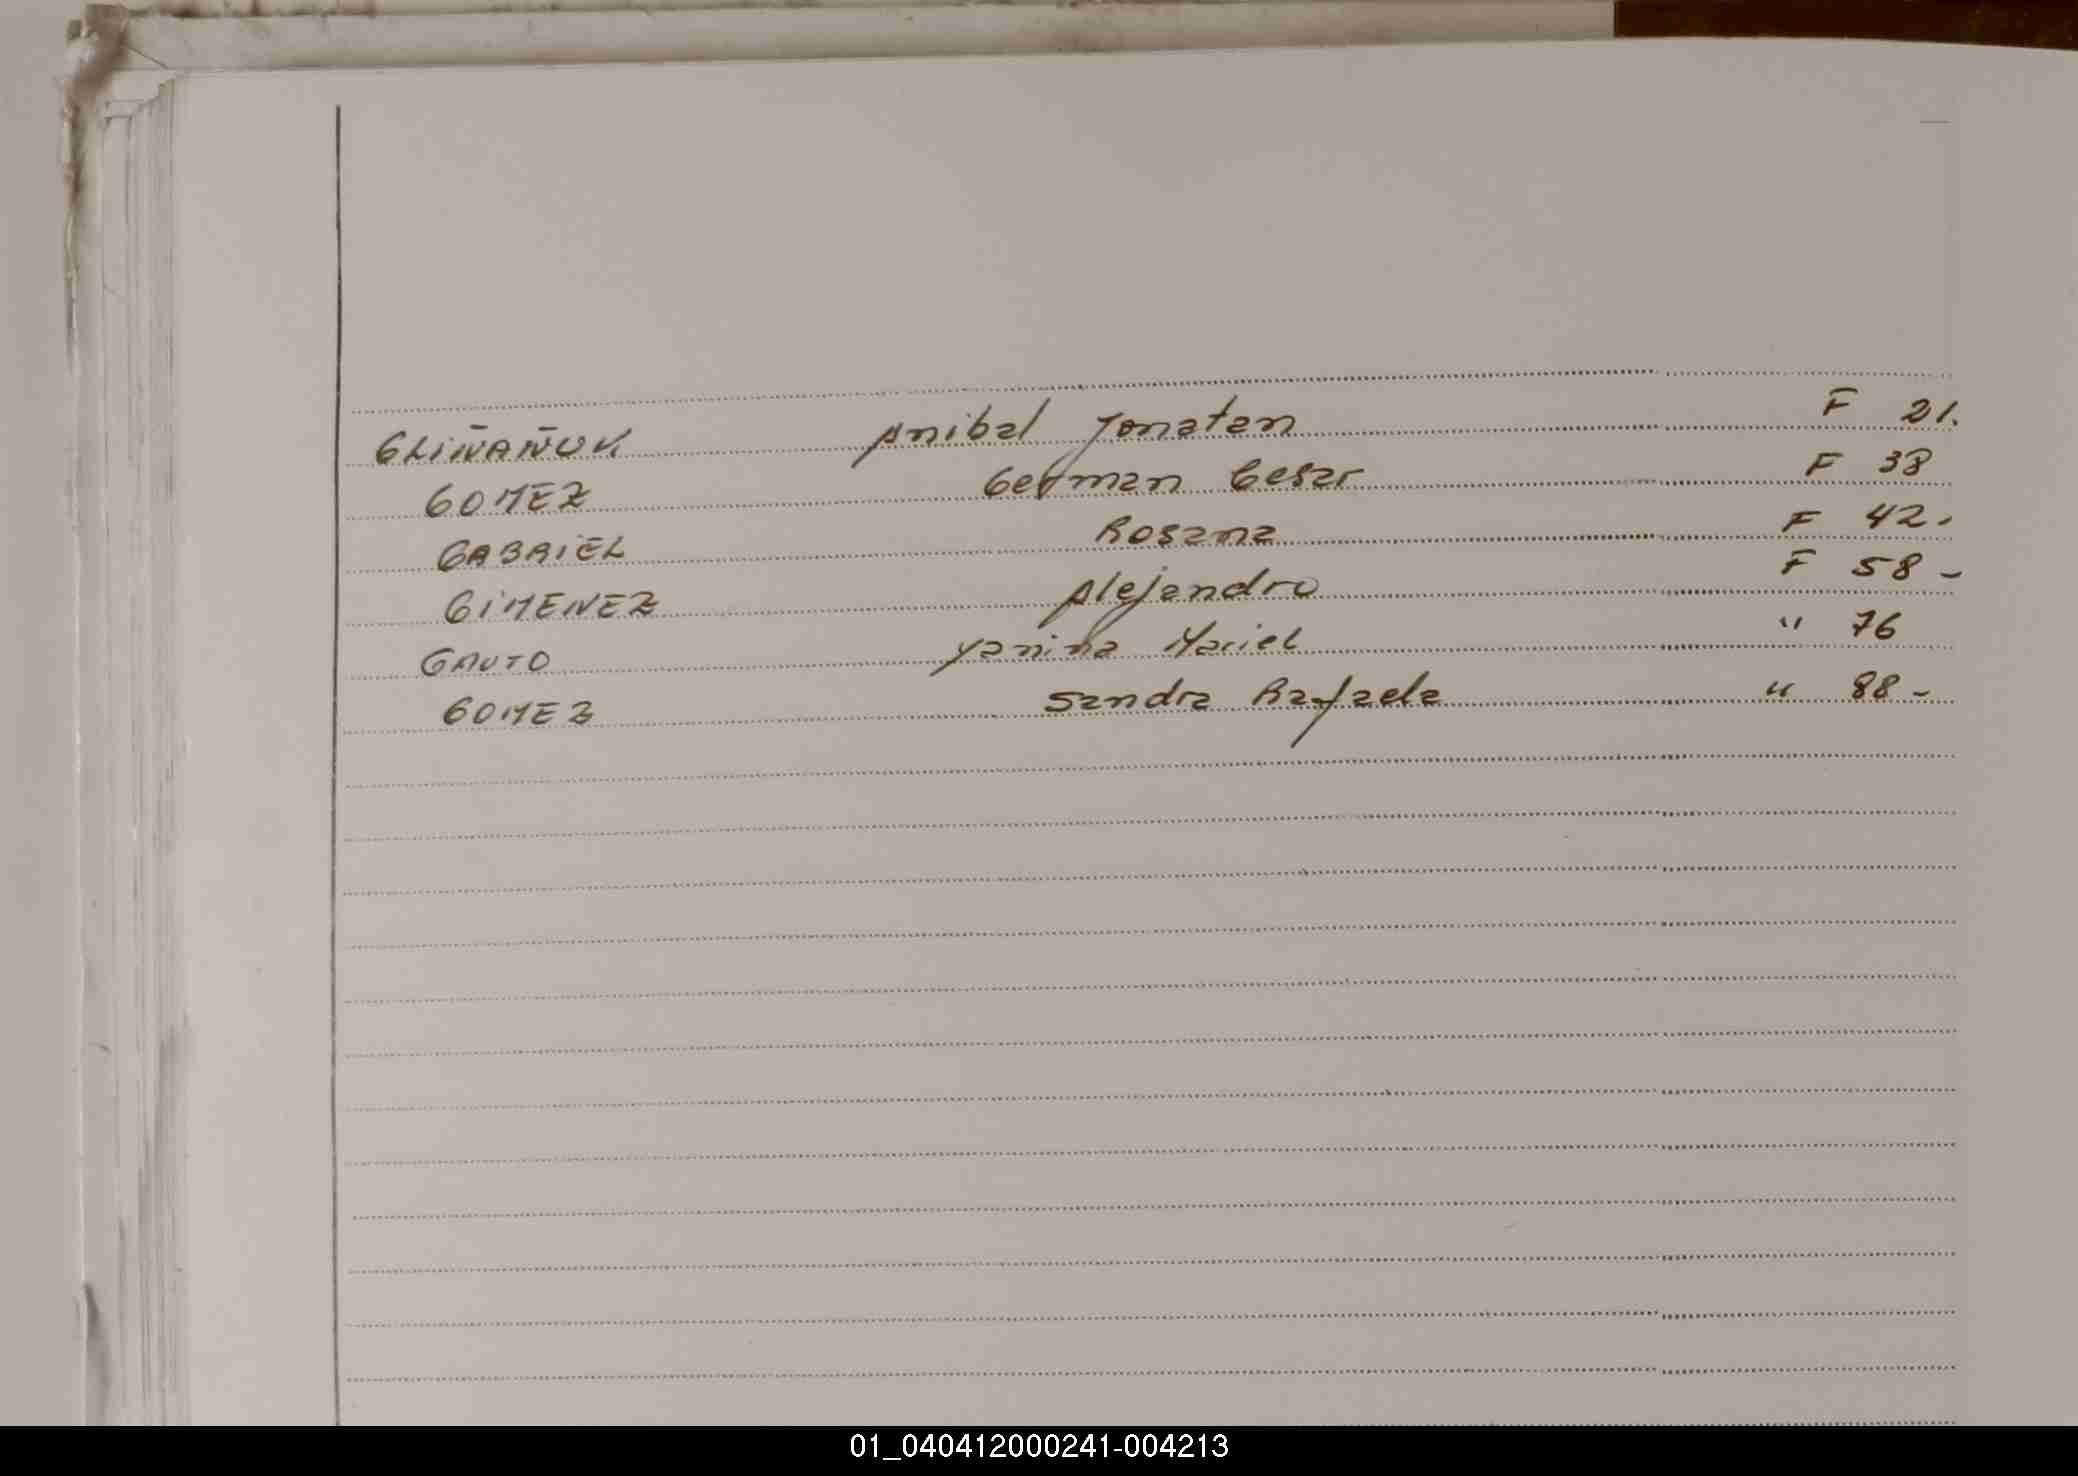 GLIÑAÑUK Anibal Jonatan F 21.
GOMEZ German Cesar F 38
GABRIEL Rosana F 42.
GIMENEZ Alejandro F 58 -
GAUTO Yanina Mariel " 76
GOMEZ Sandra Rafaela " 88 -
01_040412000241-004213